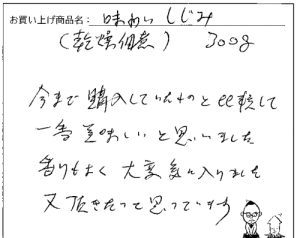 お買い上げ商品名: 味わい しじみ
(乾燥佃煮) 300g
今まで購入していたものと比較して
一番美味しいと思いました
香りもよく大変気に入りました
又頂きたいって思っています